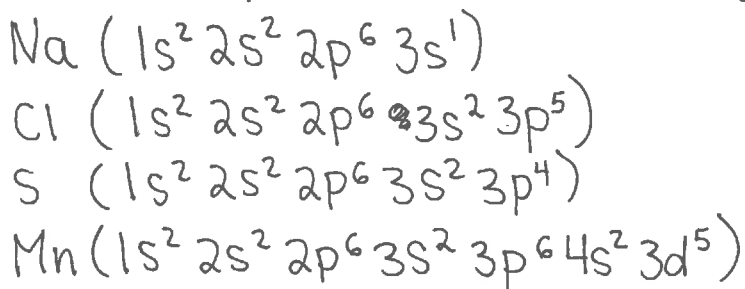 Na (1s² 2s² 2p⁶ 3s¹)
Cl (1s² 2s² 2p⁶ 3s² 3p⁵)
S (1s² 2s² 2p⁶ 3s² 3p⁴)
Mn (1s² 2s² 2p⁶ 3s² 3p⁶ 4s² 3d⁵)